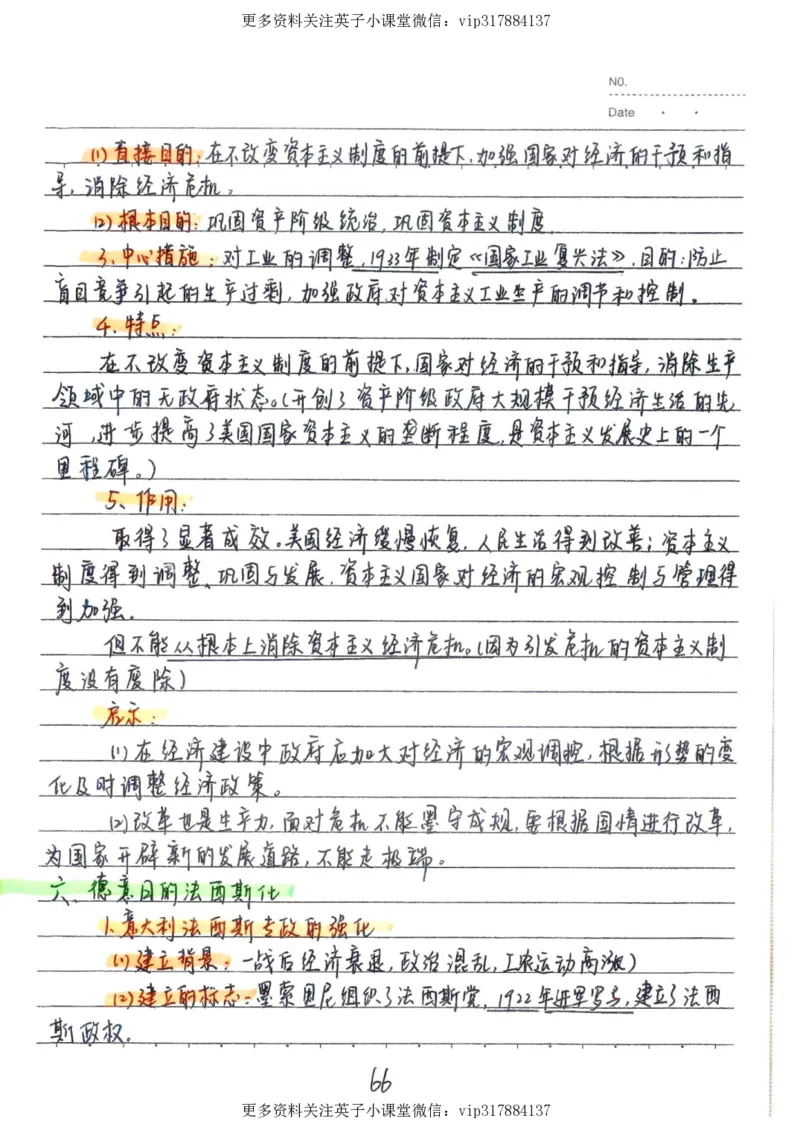 更多资料关注英子小课堂微信：vip317884137
NO.
Date
(1)直接目的：在不改变资本主义制度的前提下，加强国家对经济的干预和指
导，消除经济危机。
(2)根本目的：巩固资产阶级统治，巩固资本主义制度
3、中心措施：对工业的调整，1933年制定《国家工业复兴法》，目的：防止
盲目竞争引起的生产过剩，加强政府对资本主义工业生产的调节和控制。
4、特点：
在不改变资本主义制度的前提下，国家对经济的干预和指导，消除生产
领域中的无政府状态。（开创了资产阶级政府大规模干预经济生活的先
河，进步提高了美国国家资本主义的垄断程度，是资本主义发展史上的一个
里程碑。）
5、作用：
取得了显著成效。美国经济缓慢恢复，人民生活得到改善；资本主义
制度得到调整、巩固与发展，资本主义国家对经济的宏观控制与管理得
到加强。
但不能从根本上消除资本主义经济危机。（因为引发危机的资本主义制
度没有废除）
启示：
(1)在经济建设中政府应加大对经济的宏观调控，根据形势的变
化及时调整经济政策。
(2)改革也是生产力，面对危机不能墨守成规，要根据国情进行改革，
为国家开辟新的发展道路，不能走极端。
六、德意日的法西斯化
1、意大利法西斯专政的强化
(1)建立背景：一战后经济衰退，政治混乱，工农运动高涨）
(2)建立的标志：墨索里尼组织了法西斯党，1922年进军罗马，建立了法西
斯政权。
66
更多资料关注英子小课堂微信：vip317884137